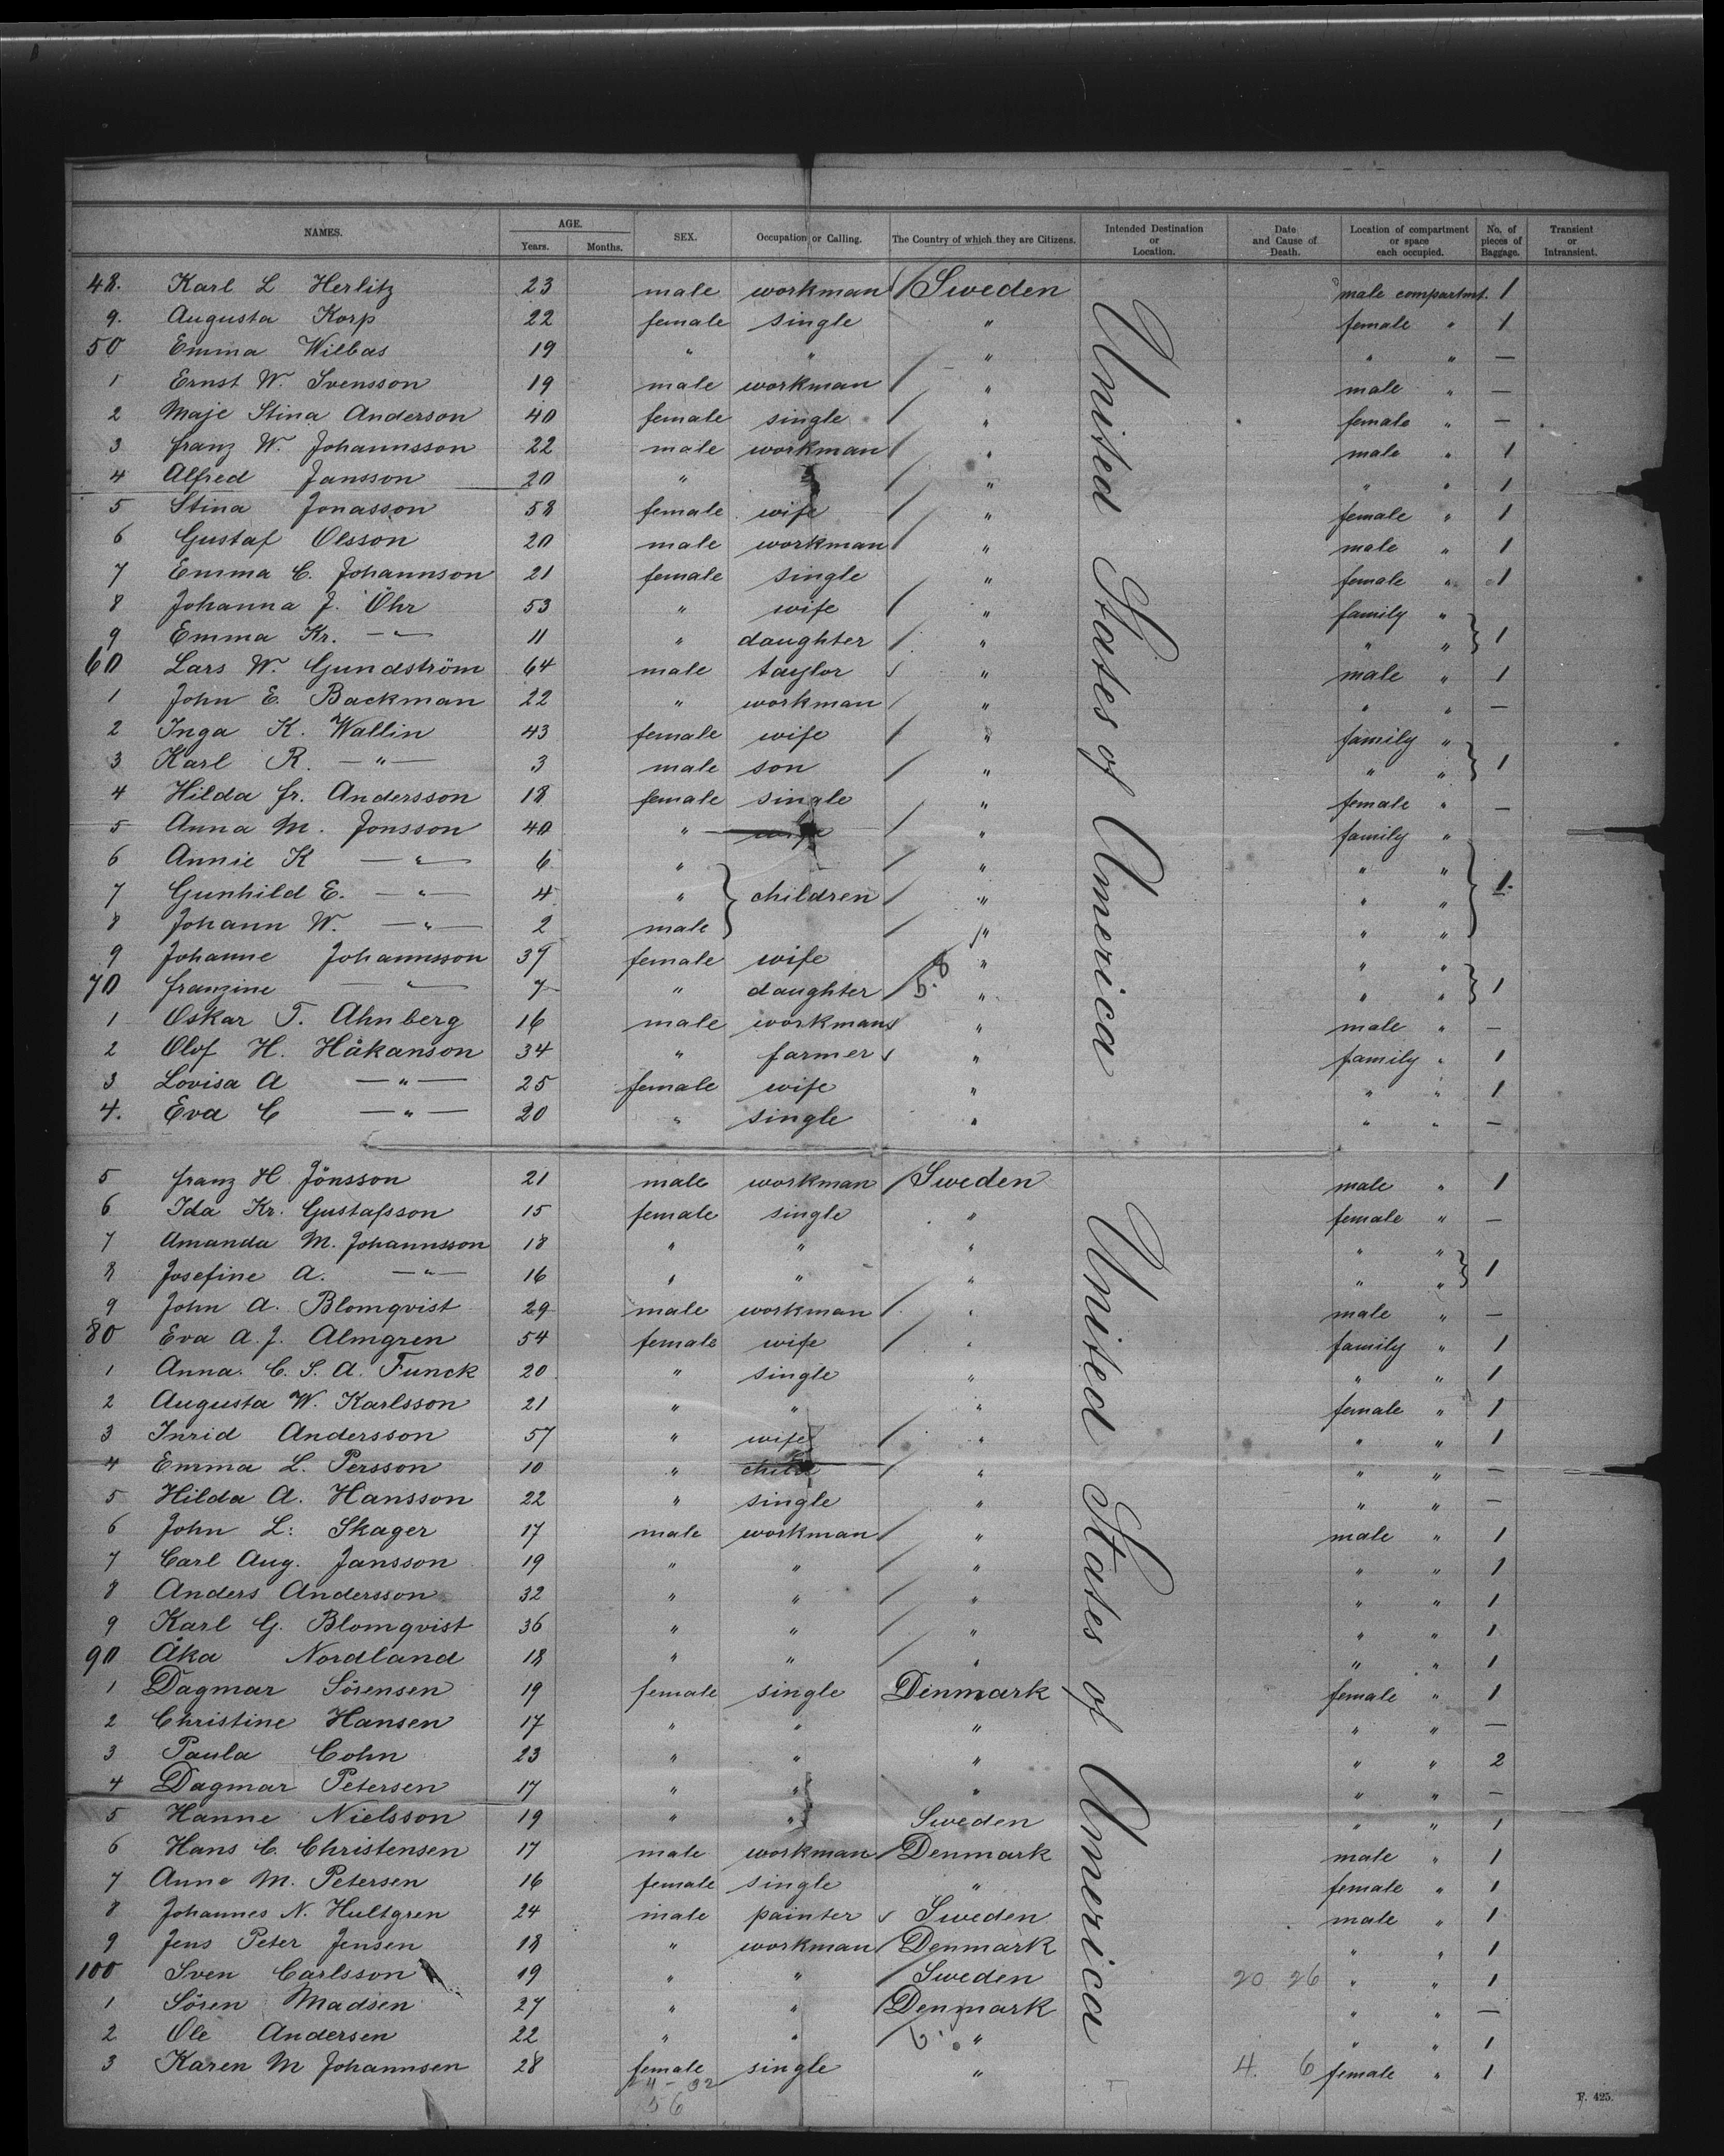 NAMES. AGE. SEX. Occupation or Calling. The Country of which they are Citizens. Intended Destination or Location. Date and Cause of Death. Location of compartment or space each occupied. No. of pieces of Baggage. Transient or Intransient.
Years. Months.
48. Karl L Herlitz 23 male workman Sweden male compartmt. 1
9. Augusta Korp 22 female single " female " 1
50 Emma Wilbas 19 " " " " " —
1 Ernst W. Svensson 19 male workman " male " —
2 Maje Stina Anderson 40 female single " female " —
3 franz W. Johannsson 22 male workman " male " 1
4 Alfred Jansson 20 " " " " 1
5 Stina Jonasson 58 female wife " female " 1
6 Gustaf Olsson 20 male workman " male " 1
7 Emma C. Johannson 21 female single " female " 1
8 Johanna J. Öhr 53 " wife " family "
9 Emma Kr. — " — 11 " daughter " " " } 1
60 Lars W. Gundström 64 male taylor " male " 1
1 John E. Backman 22 " workman " " " —
2 Inga K. Wallin 43 female wife " family "
3 Karl R. — " — 3 male son " " " } 1
4 Hilda fr. Andersson 18 female single " female " —
5 Anna M. Jonsson 40 " wife " family "
6 Annie K — " — 6 " " " "
7 Gunhild E. — " — 4 " } children " " " } 1
8 Johann W. — " — 2 male " " "
9 Johanne Johannsson 39 female wife " " "
70 franzine — " — 7 " daughter " " " } 1
1 Oskar T. Ahnberg 16 male workman " male " —
2 Olof H. Håkanson 34 " farmer " family " 1
3 Lovisa A — " — 25 female wife " " " 1
4. Eva C — " — 20 " single " " " —
United States of America
5 franz H Jönsson 21 male workman Sweden male " 1
6 Ida Kr. Gustafsson 15 female single " female " —
7 Amanda M. Johannsson 18 " " " " "
8 Josefine A. — " — 16 " " " " " } 1
9 John A. Blomqvist 29 male workman " male " —
80 Eva A. J. Almgren 54 female wife " family " 1
1 Anna C. S. A. Funck 20 " single " " " 1
2 Augusta W. Karlsson 21 " " " female " 1
3 Inrid Andersson 57 " wife " " " 1
4 Emma L. Persson 10 " child " " " —
5 Hilda A. Hansson 22 " single " " " —
6 John L. Skager 17 male workman " male " 1
7 Carl Aug. Jansson 19 " " " " " 1
8 Anders Andersson 32 " " " " " 1
9 Karl G. Blomqvist 36 " " " " " 1
90 Åka Nordland 18 " " " " " 1
1 Dagmar Sörensen 19 female single Denmark female " 1
2 Christine Hansen 17 " " " " " —
3 Paula Cohn 23 " " " " " 2
4 Dagmar Petersen 17 " " " " " —
5 Hanne Nielsson 19 " " Sweden " " 1
6 Hans C. Christensen 17 male workman Denmark male " 1
7 Anne M. Petersen 16 female single " female " 1
8 Johannes N. Hultgren 24 male painter Sweden male " 1
9 Jens Peter Jensen 18 " workman Denmark " " 1
100 Sven Carlsson 19 " " Sweden 20 26 " " 1
1 Sören Madsen 27 " " Denmark " " —
2 Ole Andersen 22 " " " " " 1
3 Karen M Johannsen 28 female single " 4. 6 female " 1
United States of America
56
F. 425.